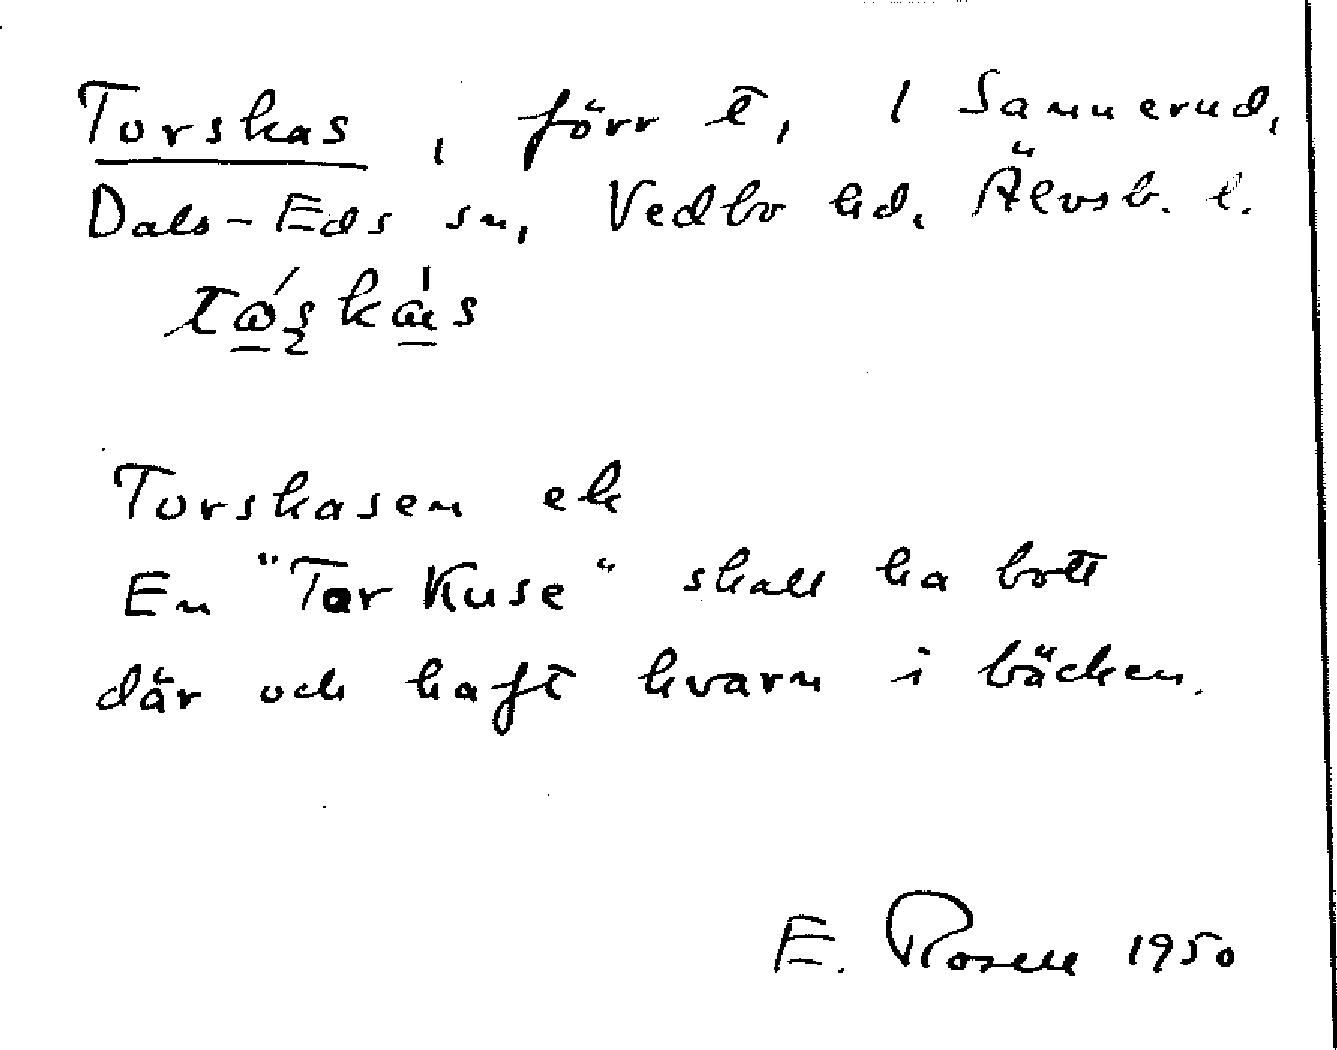 Torskas, förr t, 1 Sannerud,
Dals-Eds sn, Vedbo hd, Älvsb. l.
Torskasen ek
En "Tor Kuse" skall ha bott
där och haft kvarn i bäcken.
E. Rosell 1950